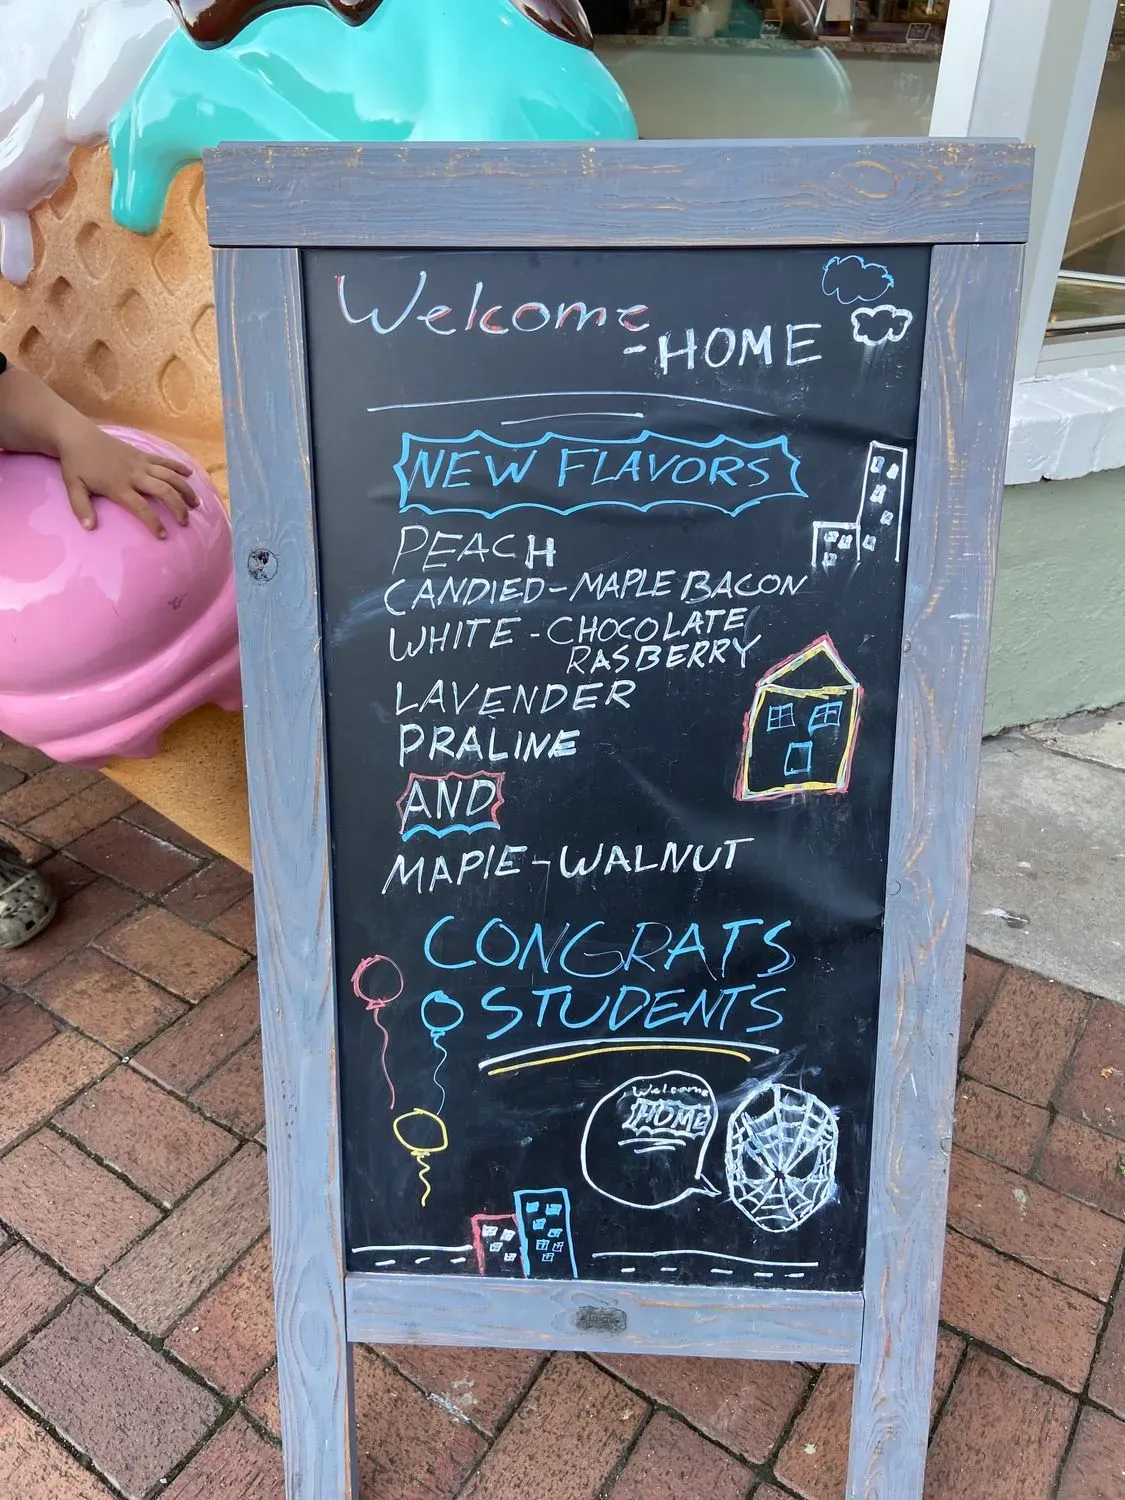 Welcome
-HOME
NEW FLAVORS
PEACH
CANDIED-MAPLE BACON
WHITE-CHOCOLATE
RASBERRY
LAVENDER
PRALINE
AND
MAPLE-WALNUT
CONGRATS
STUDENTS
Welcome
HOME